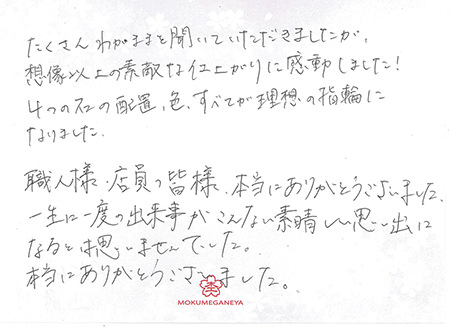 たくさんわがままを聞いていただきましたが、
想像以上の素敵な仕上がりに感動しました!
4つの石の配置、色、すべてが理想の指輪に
なりました。
職人様・店員の皆様、本当にありがとうございました。
一生に一度の出来事がこんない素晴しい思い出に
なるとは思いませんでした。
本当にありがとうございました。
MOKUMEGANEYA